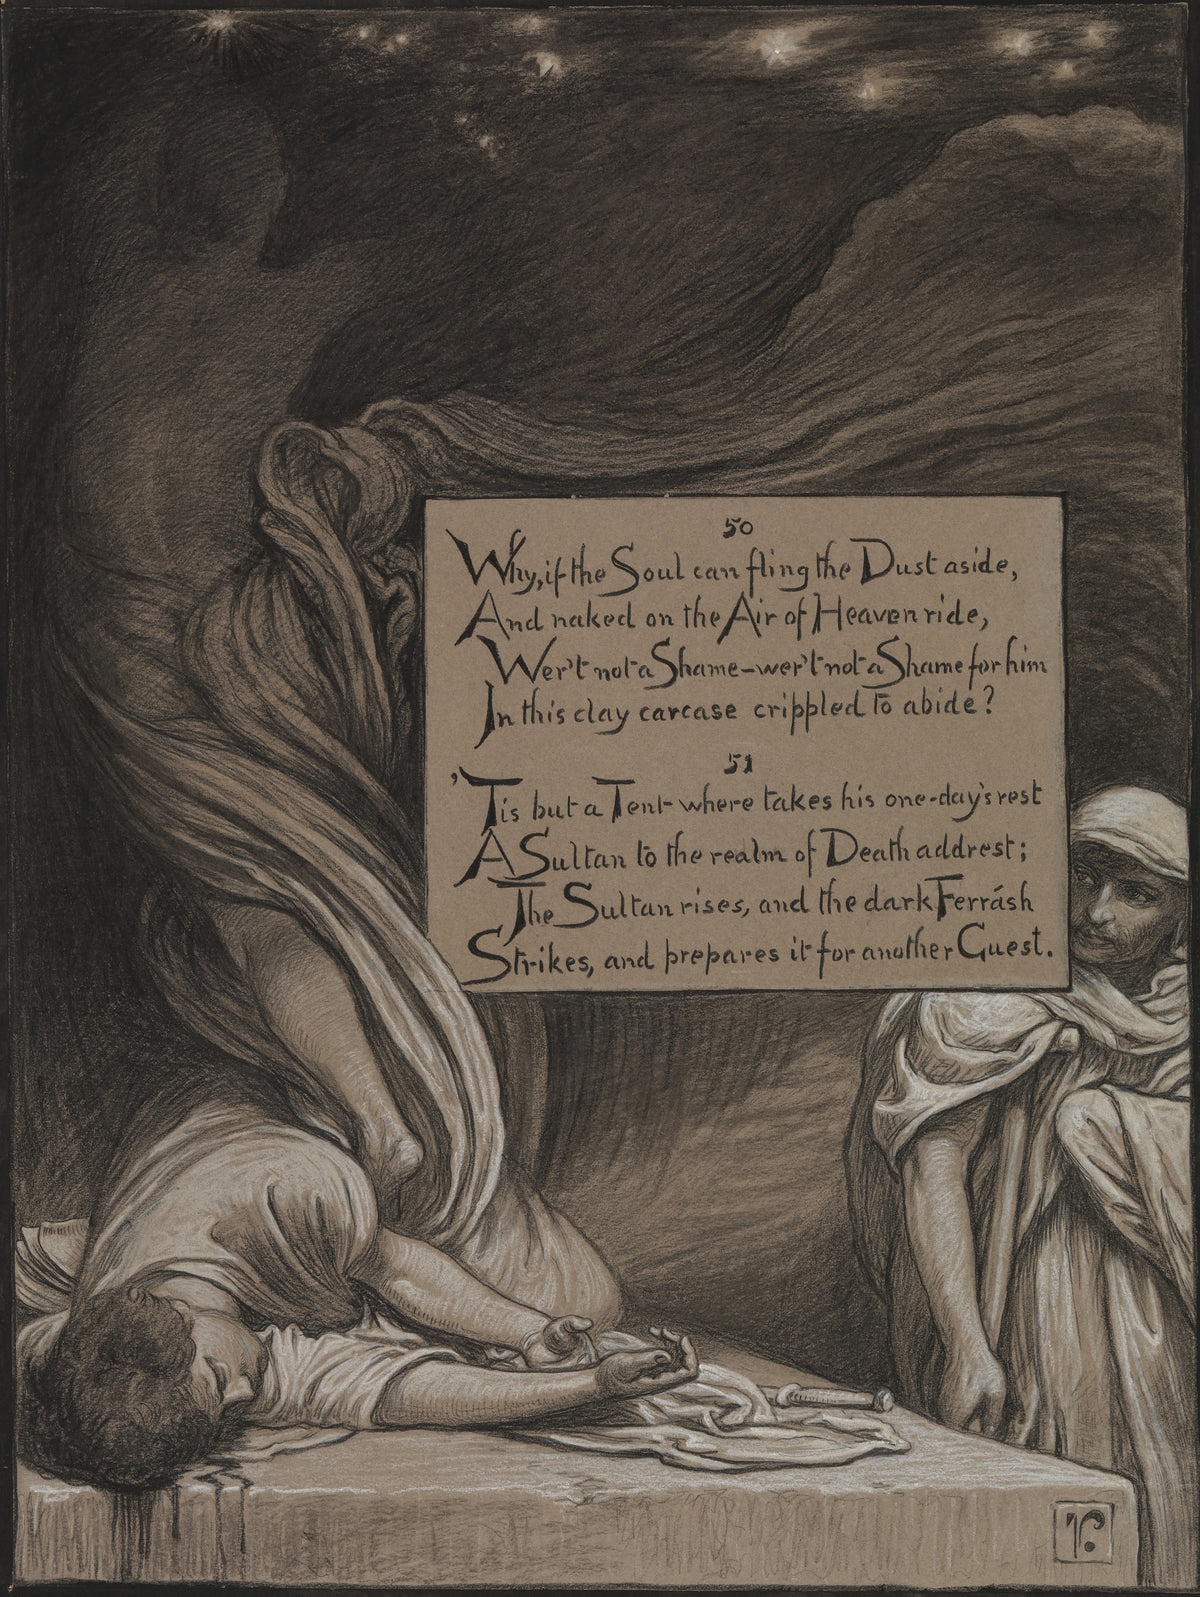 50
Why, if the Soul can fling the Dust aside,
And naked on the Air of Heaven ride,
Wer't not a Shame—wer't not a Shame for him
In this clay carcase crippled to abide?
51
'Tis but a Tent where takes his one-day's rest
A Sultan to the realm of Death addrest;
The Sultan rises, and the dark Ferrásh
Strikes, and prepares it for another Guest.